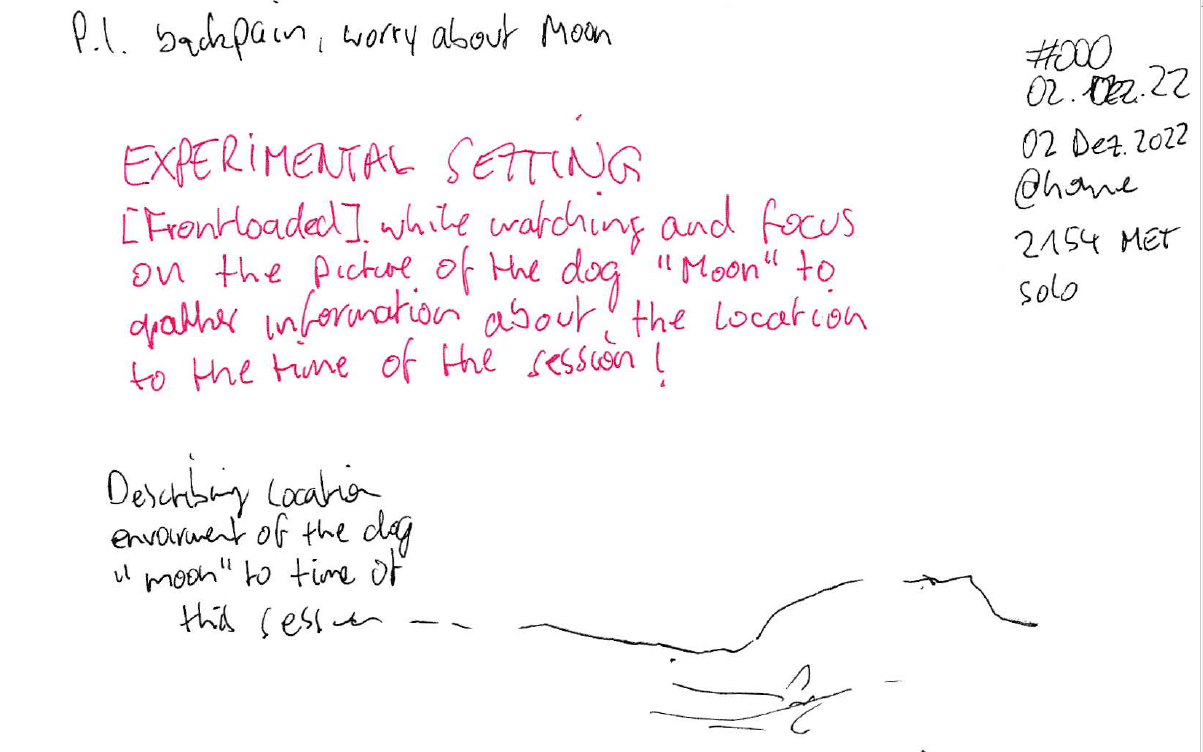 P.I. backpain, worry about Moon
#000
02. DEZ. 22
02 Dez. 2022
@home
2154 MET
solo
EXPERIMENTAL SETTING
[Frontloaded] while watching and focus
on the picture of the dog "Moon" to
gather information about the location
to the time of the session!
Describing Location
envoirment of the dog
"moon" to time of
this session